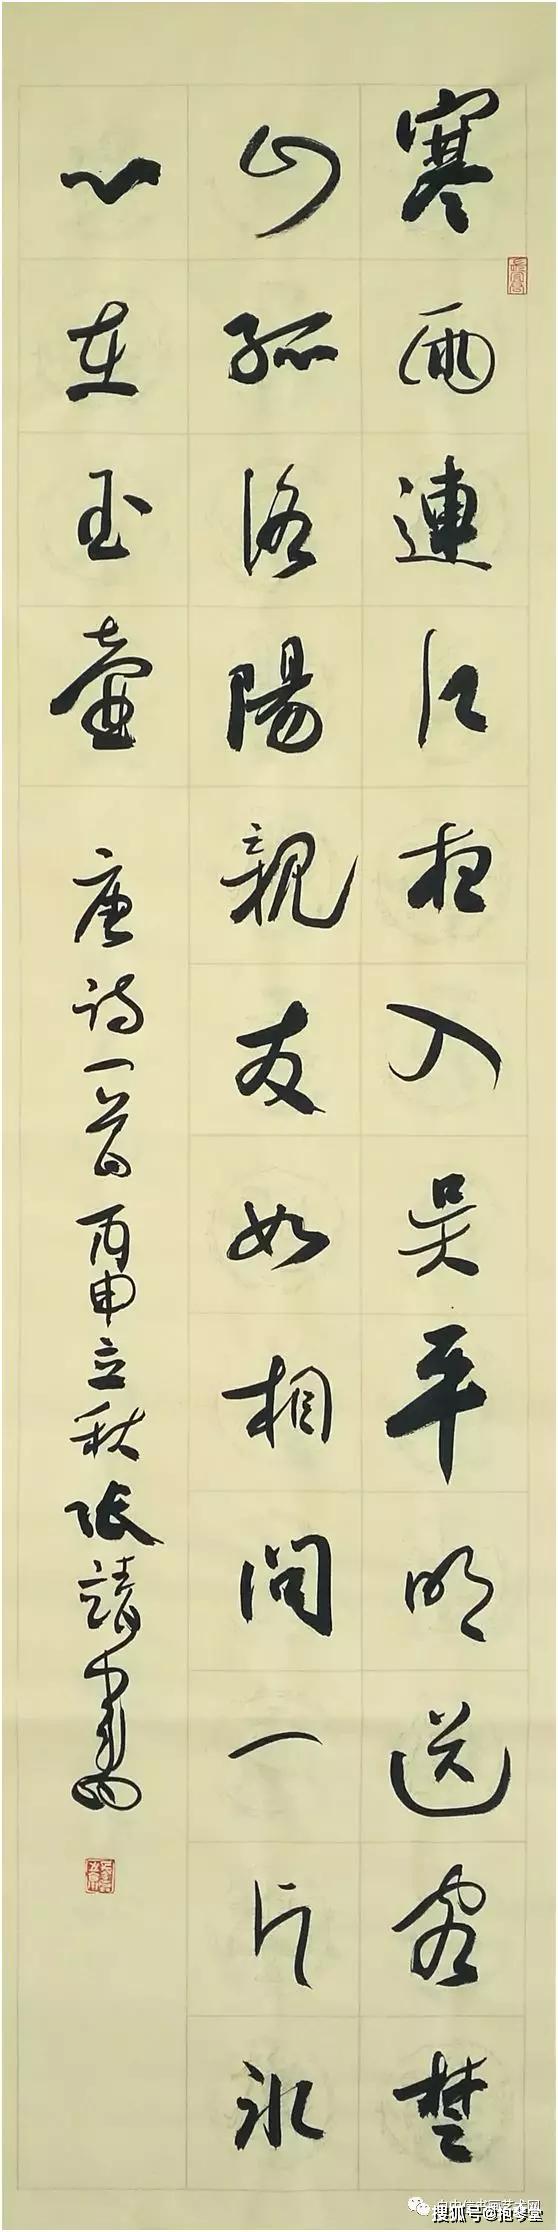 寒雨連江夜入吴平明送客楚
山孤洛陽親友如相問一片冰
心在玉壺
唐詩一首丙申立秋张靖書
搜狐号@抱琴堂